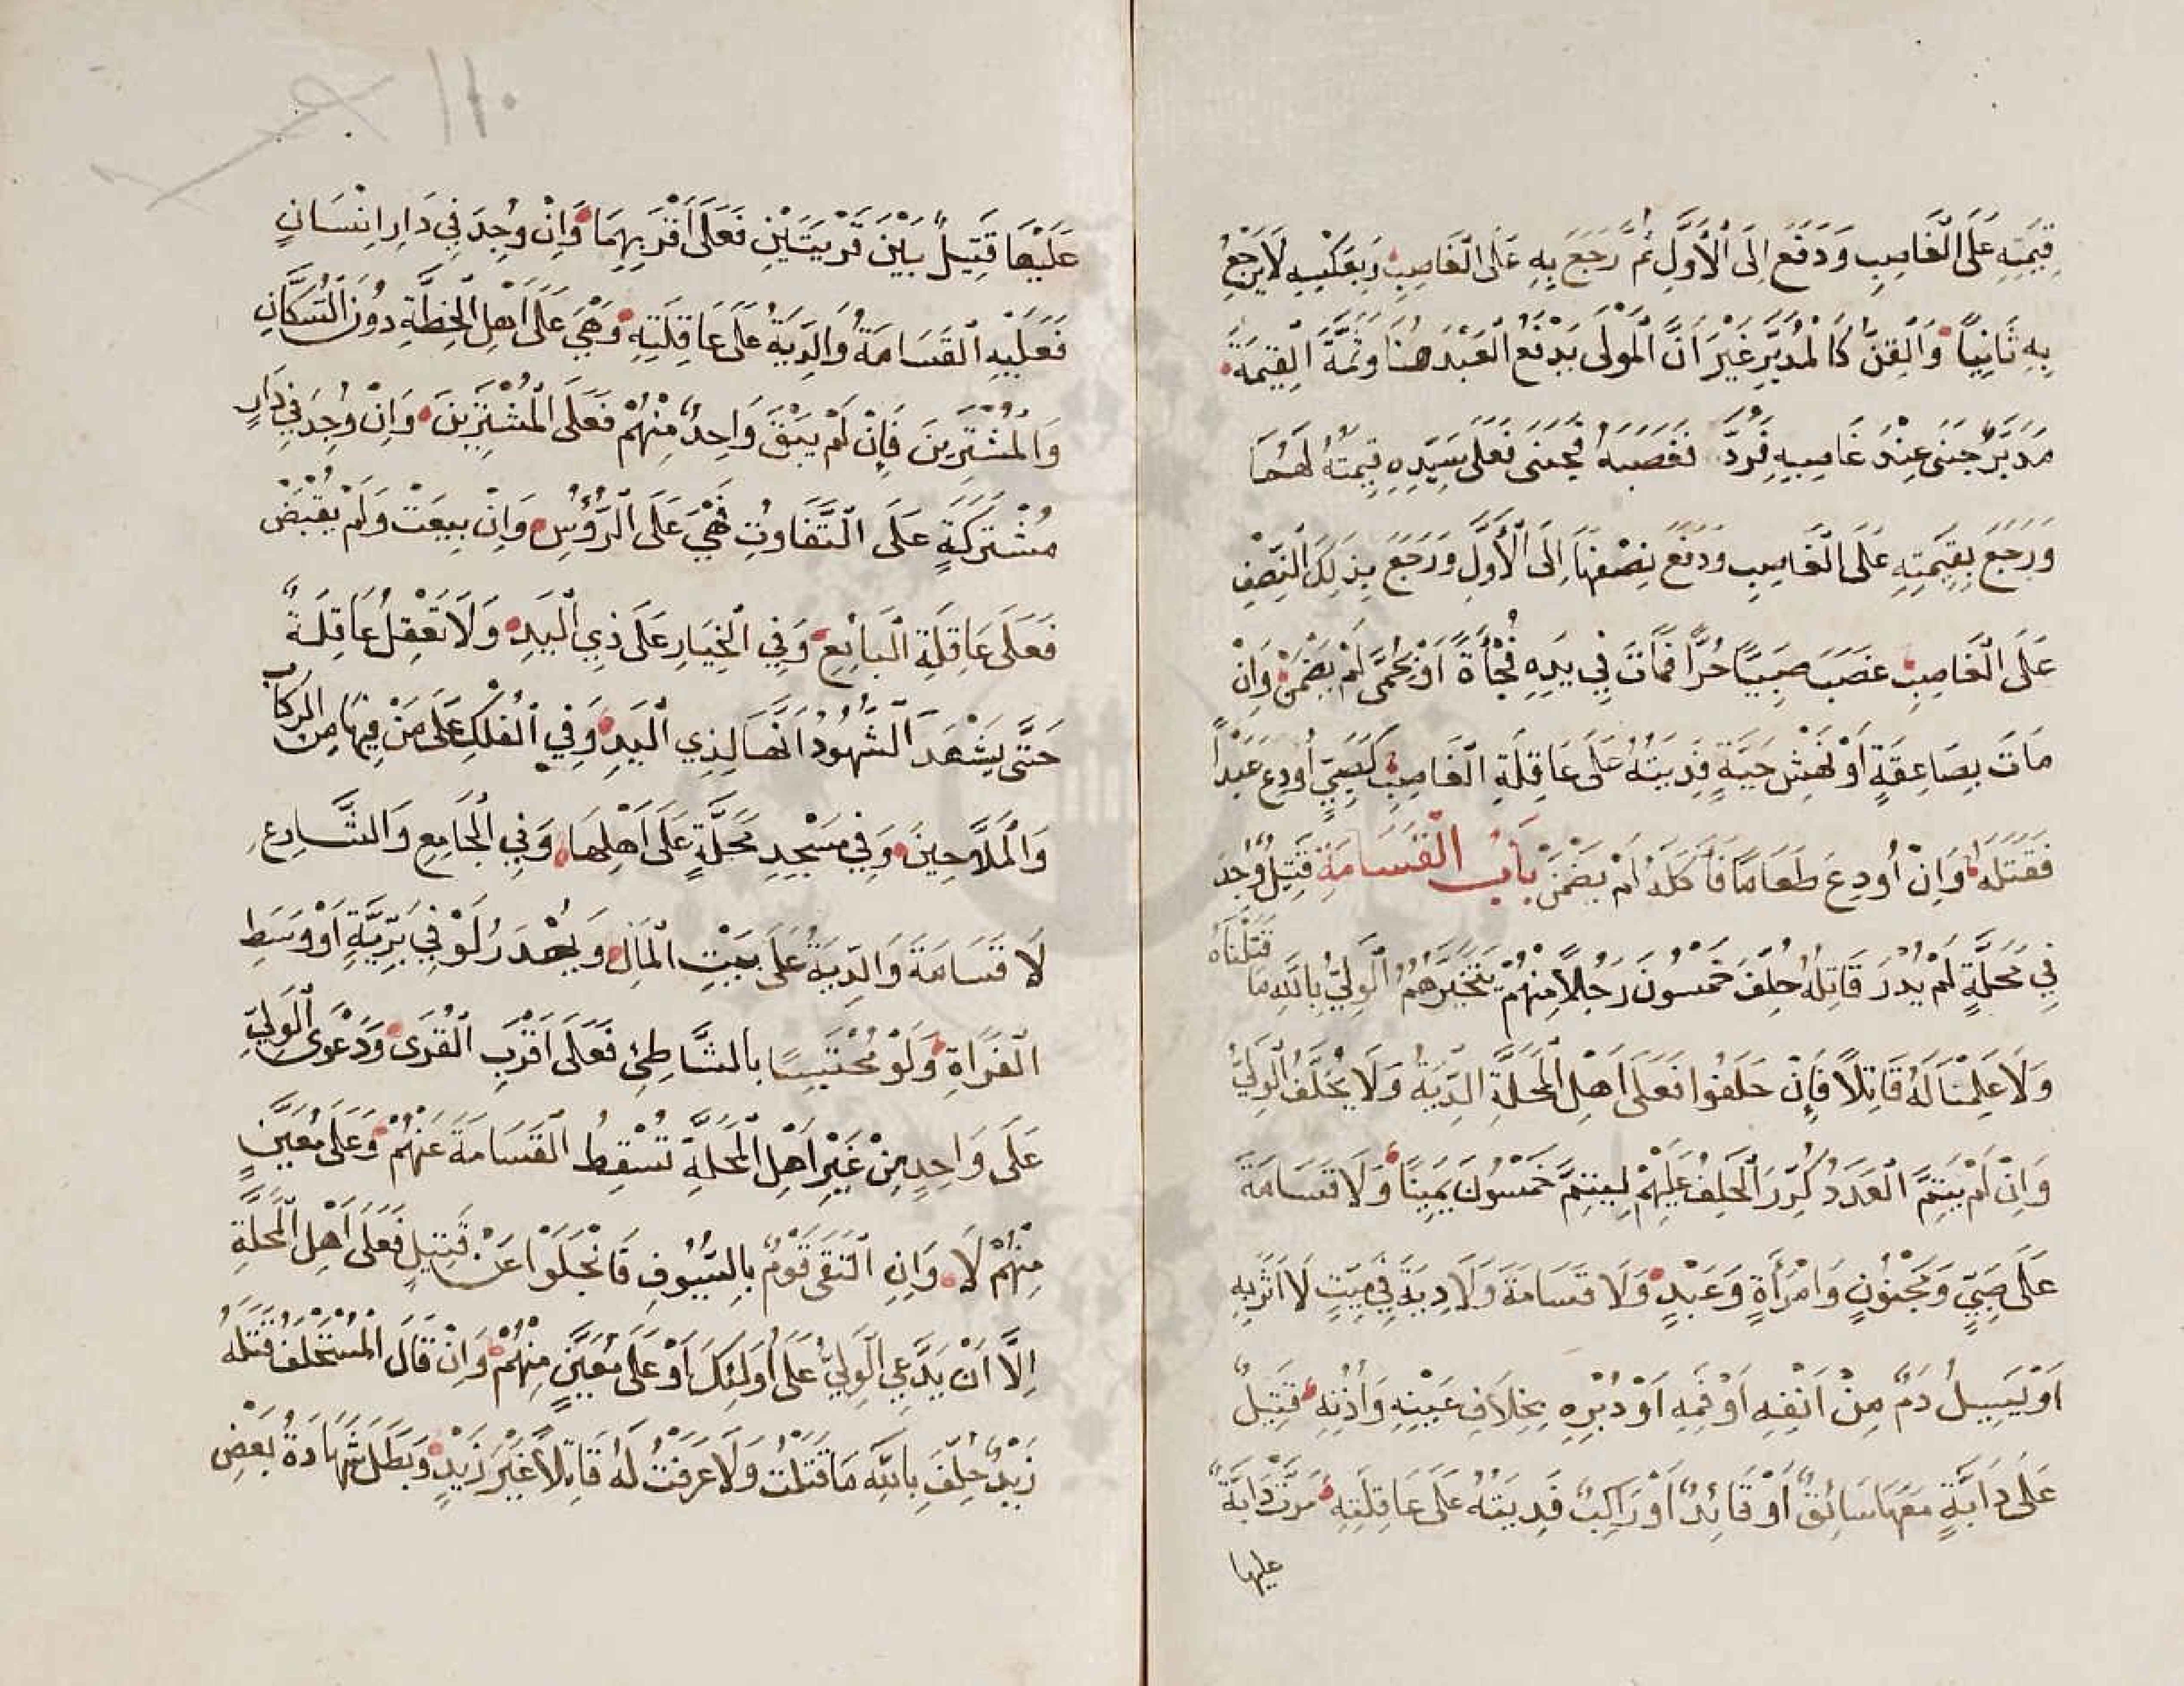 قِيْمَتِهِ عَلَى الْغَاصِبِ وَدَفَعَ اِلَى الْأَوَّلِ ثُمَّ رَجَعَ بِهِ عَلَى الْغَاصِبِ وَبِعَكْسِهِ لَا يَرْجِعُ
بِهِ ثَانِيًا وَالْقِنُّ كَالْمُدَبَّرِ غَيْرَ اَنَّ الْمَوْلَى يَدْفَعُ الْعَبْدَ هُنَا وَثَمَّةَ الْقِيمَةَ
مُدَبَّرٌ جَنَى عِنْدَ غَاصِبِهِ فَرُدَّ فَغَصَبَهُ فَجَنَى فَعَلَى سَيِّدِهِ قِيمَتُهُ لَهُمَا
وَرَجَعَ بِقِيْمَتِهِ عَلَى الْغَاصِبِ وَدَفَعَ نِصْفَهَا اِلَى الْأَوَّلِ وَرَجَعَ بِذَلِكَ النِّصْفِ
عَلَى الْغَاصِبِ غَصَبَ صَبِيًّا حُرًّا فَمَاتَ فِي يَدِهِ فُجْأَةً اَوْ بِحُمَّى لَمْ يَضْمَنْ وَاِنْ
مَاتَ بِصَاعِقَةٍ اَوْ نَهْشِ حَيَّةٍ فَدِيَتُهُ عَلَى عَاقِلَةِ الْغَاصِبِ كَصَبِيٍّ اُودِعَ عَبْدًا
فَقَتَلَهُ وَاِنْ اُودِعَ طَعَامًا فَأَكَلَهُ لَمْ يَضْمَنْ بَابُ الْقَسَامَةِ قَتِيلٌ وُجِدَ
فِي مَحَلَّةٍ لَمْ يُدْرَ قَاتِلُهُ حُلِّفَ خَمْسُونَ رَجُلًا مِنْهُمْ يَتَخَيَّرُهُمُ الْوَلِيُّ بِاللّٰهِ مَا قَتَلْنَاهُ
وَلَا عَلِمْنَا لَهُ قَاتِلًا فَاِنْ حَلَفُوا فَعَلَى اَهْلِ الْمَحَلَّةِ الدِّيَةُ وَلَا يُحَلَّفُ الْوَلِيُّ
وَاِنْ لَمْ يَتِمَّ الْعَدَدُ كُرِّرَ الْحَلِفُ عَلَيْهِمْ لِيَتِمَّ خَمْسُونَ يَمِيْنًا وَلَا قَسَامَةَ
عَلَى صَبِيٍّ وَمَجْنُونٍ وَامْرَأَةٍ وَعَبْدٍ وَلَا قَسَامَةَ وَلَا دِيَةَ فِي مَيِّتٍ لَا اَثَرَ بِهِ
اَوْ يَسِيلُ دَمٌ مِنْ اَنْفِهِ اَوْ فَمِهِ اَوْ دُبُرِهِ بِخِلَافِ عَيْنِهِ وَأُذُنِهِ قَتِيلٌ
عَلَى دَابَّةٍ مَعَهَا سَائِقٌ اَوْ قَائِدٌ اَوْ رَاكِبٌ فَدِيَتُهُ عَلَى عَاقِلَتِهِ مَرَّتْ دَابَّةٌ
عليها
١١٠
عَلَيْهَا قَتِيلٌ بَيْنَ قَرْيَتَيْنِ فَعَلَى اَقْرَبِهِمَا وَاِنْ وُجِدَ فِي دَارِ اِنْسَانٍ
فَعَلَيْهِ الْقَسَامَةُ وَالدِّيَةُ عَلَى عَاقِلَتِهِ وَهْيَ عَلَى اَهْلِ الْخِطَّةِ دُوْنَ السُّكَّانِ
وَالْمُشْتَرِينَ فَاِنْ لَمْ يَبْقَ وَاحِدٌ مِنْهُمْ فَعَلَى الْمُشْتَرِينَ وَاِنْ وُجِدَ فِي دَارٍ
مُشْتَرَكَةٍ عَلَى التَّفَاوُتِ فَهْيَ عَلَى الرُّؤُسِ وَاِنْ بِيعَتْ وَلَمْ يُقْبَضْ
فَعَلَى عَاقِلَةِ الْبَائِعِ وَفِي الْخِيَارِ عَلَى ذِي الْيَدِ وَلَا تَعْقِلُ عَاقِلَةٌ
حَتَّى يَشْهَدَ الشُّهُودُ اَنَّهَا لِذِي الْيَدِ وَفِي الْفُلْكِ عَلَى مَنْ فِيْهَا مِنَ الرُّكَّابِ
وَالْمَلَّاحِينَ وَفِي مَسْجِدِ مَحَلَّةٍ عَلَى اَهْلِهَا وَفِي الْجَامِعِ وَالشَّارِعِ
لَا قَسَامَةَ وَالدِّيَةُ عَلَى بَيْتِ الْمَالِ وَيُهْدَرُ لَوْ فِي بَرِّيَّةٍ اَوْ وَسَطِ
الْفُرَاةِ وَلَوْ مُحْتَبِسًا بِالشَّاطِئِ فَعَلَى اَقْرَبِ الْقُرَى وَدَعْوَى الْوَلِيِّ
عَلَى وَاحِدٍ مِنْ غَيْرِ اَهْلِ الْمَحَلَّةِ تُسْقِطُ الْقَسَامَةَ عَنْهُمْ وَعَلَى مُعَيَّنٍ
مِنْهُمْ لَا وَاِنِ الْتَقَى قَوْمٌ بِالسُّيُوفِ فَانْجَلَوْا عَنْ قَتِيلٍ فَعَلَى اَهْلِ الْمَحَلَّةِ
اِلَّا اَنْ يَدَّعِيَ الْوَلِيُّ عَلَى اُولَئِكَ اَوْ عَلَى مُعَيَّنٍ مِنْهُمْ وَاِنْ قَالَ الْمُسْتَحْلَفُ قَتَلَهُ
زَيْدٌ حُلِّفَ بِاللّٰهِ مَا قَتَلْتُ وَلَا عَرَفْتُ لَهُ قَاتِلًا غَيْرَ زَيْدٍ وَبَطَلَ شَهَادَةُ بَعْضِ